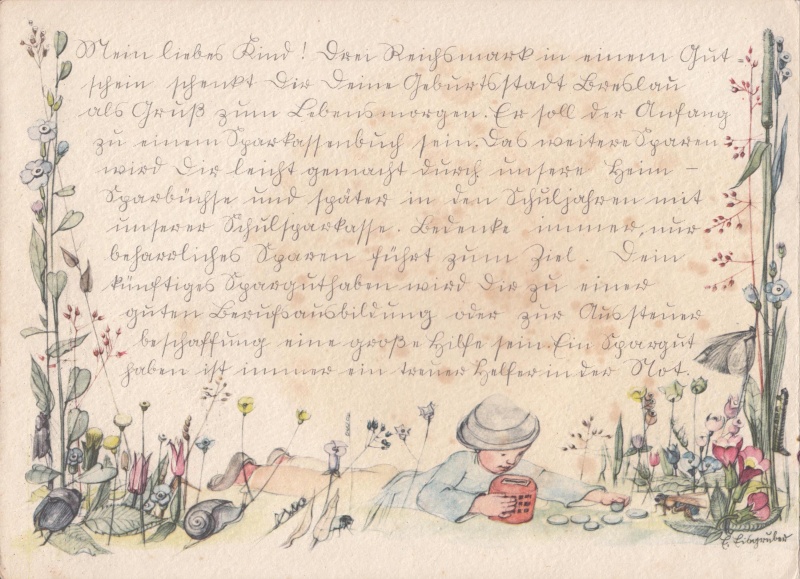 Mein liebes Kind! Drei Reichsmark in einem Gut-
schein schenkt Dir Deine Geburtsstadt Breslau
als Gruß zum Lebensmorgen. Er soll der Anfang
zu einem Sparkassenbuch sein. Das weitere Sparen
wird Dir leicht gemacht durch unsere Heim-
Sparbüchse und später in den Schuljahren mit
unserer Schulsparkasse. Bedenke immer, nur
beharrliches Sparen führt zum Ziel. Dein
künftiges Sparguthaben wird Dir zu einer
guten Berufsausbildung oder zur Aussteuer
beschaffung eine große Hilfe sein. Ein Spargut
haben ist immer ein treuer Helfer in der Not.